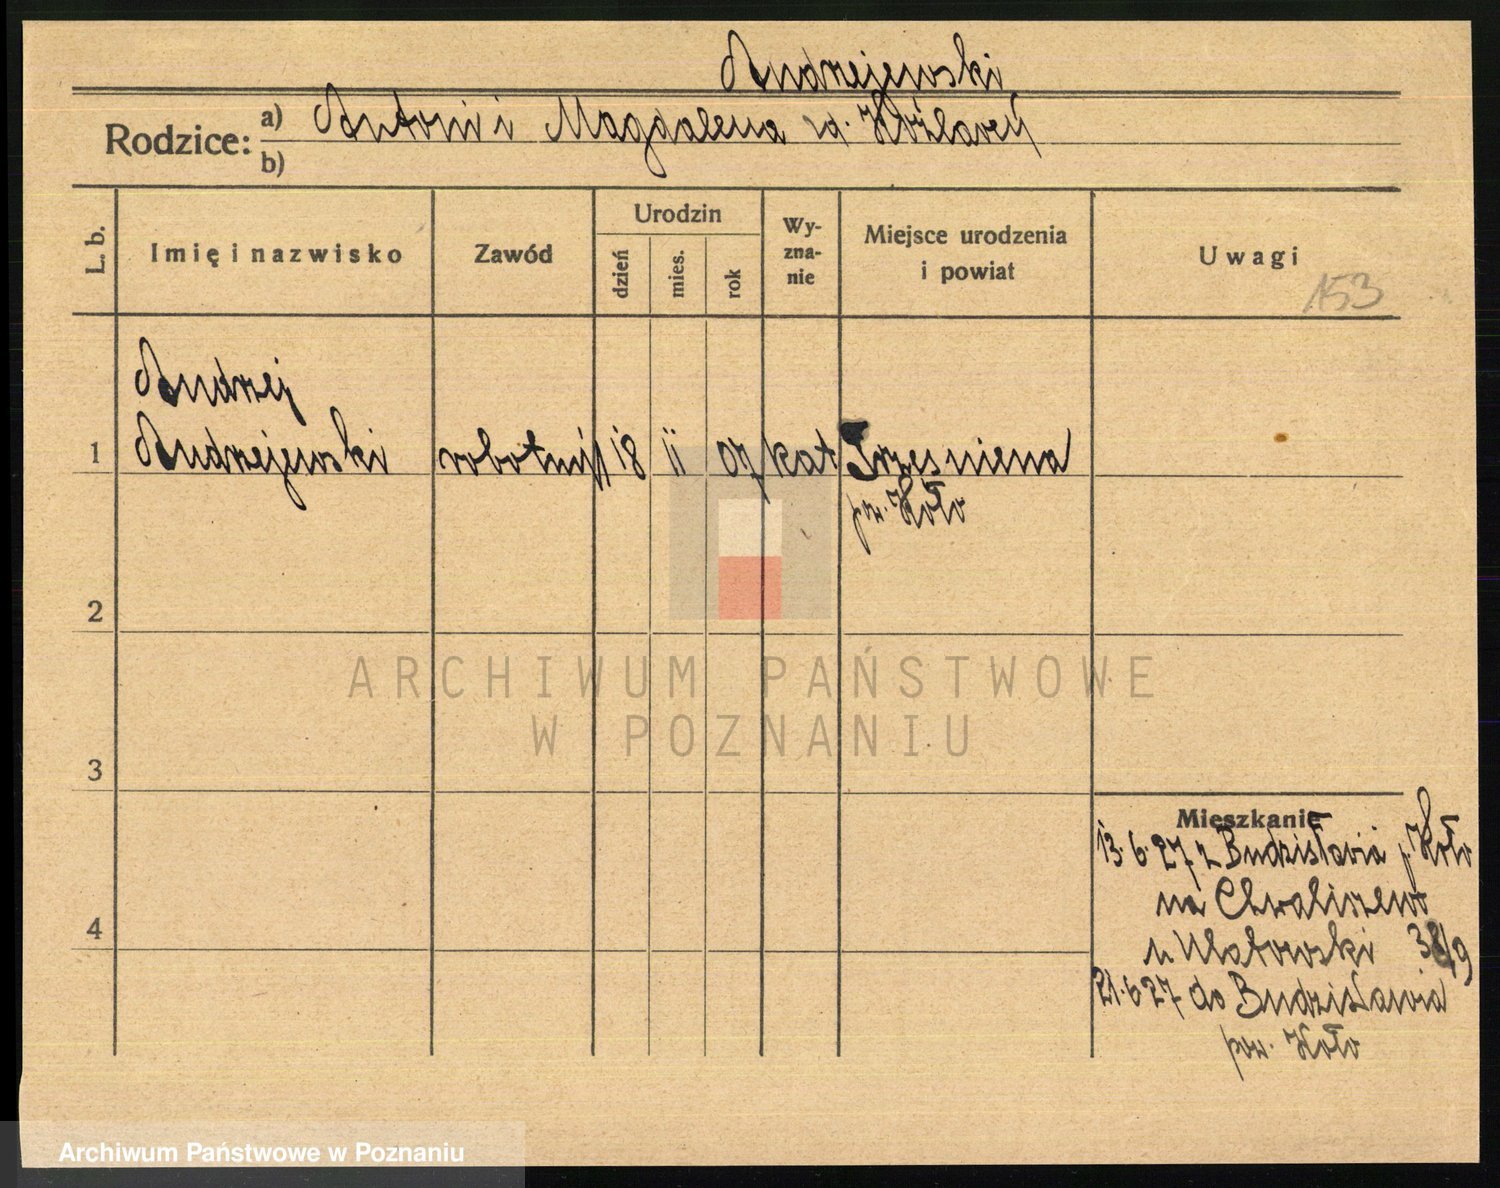 Andrzejewski
Rodzice: a) Antoni i Magdalena zd.
b)
L. b. Imię i nazwisko Zawód Urodzin dzień mies. rok Wy-zna-nie Miejsce urodzenia i powiat Uwagi
153
Andrzej
1 Andrzejewski robotnik 18 ii 07 kat
pow. Koło
2
ARCHIWUM PAŃSTWOWE
W POZNANIU
3
Mieszkanie
13.6.27 z Budzisławia p. Koło
na Chwaliszewo
4
u 38/9
21.6.27 do Budzisławia
pow. Koło
Archiwum Państwowe w Poznaniu